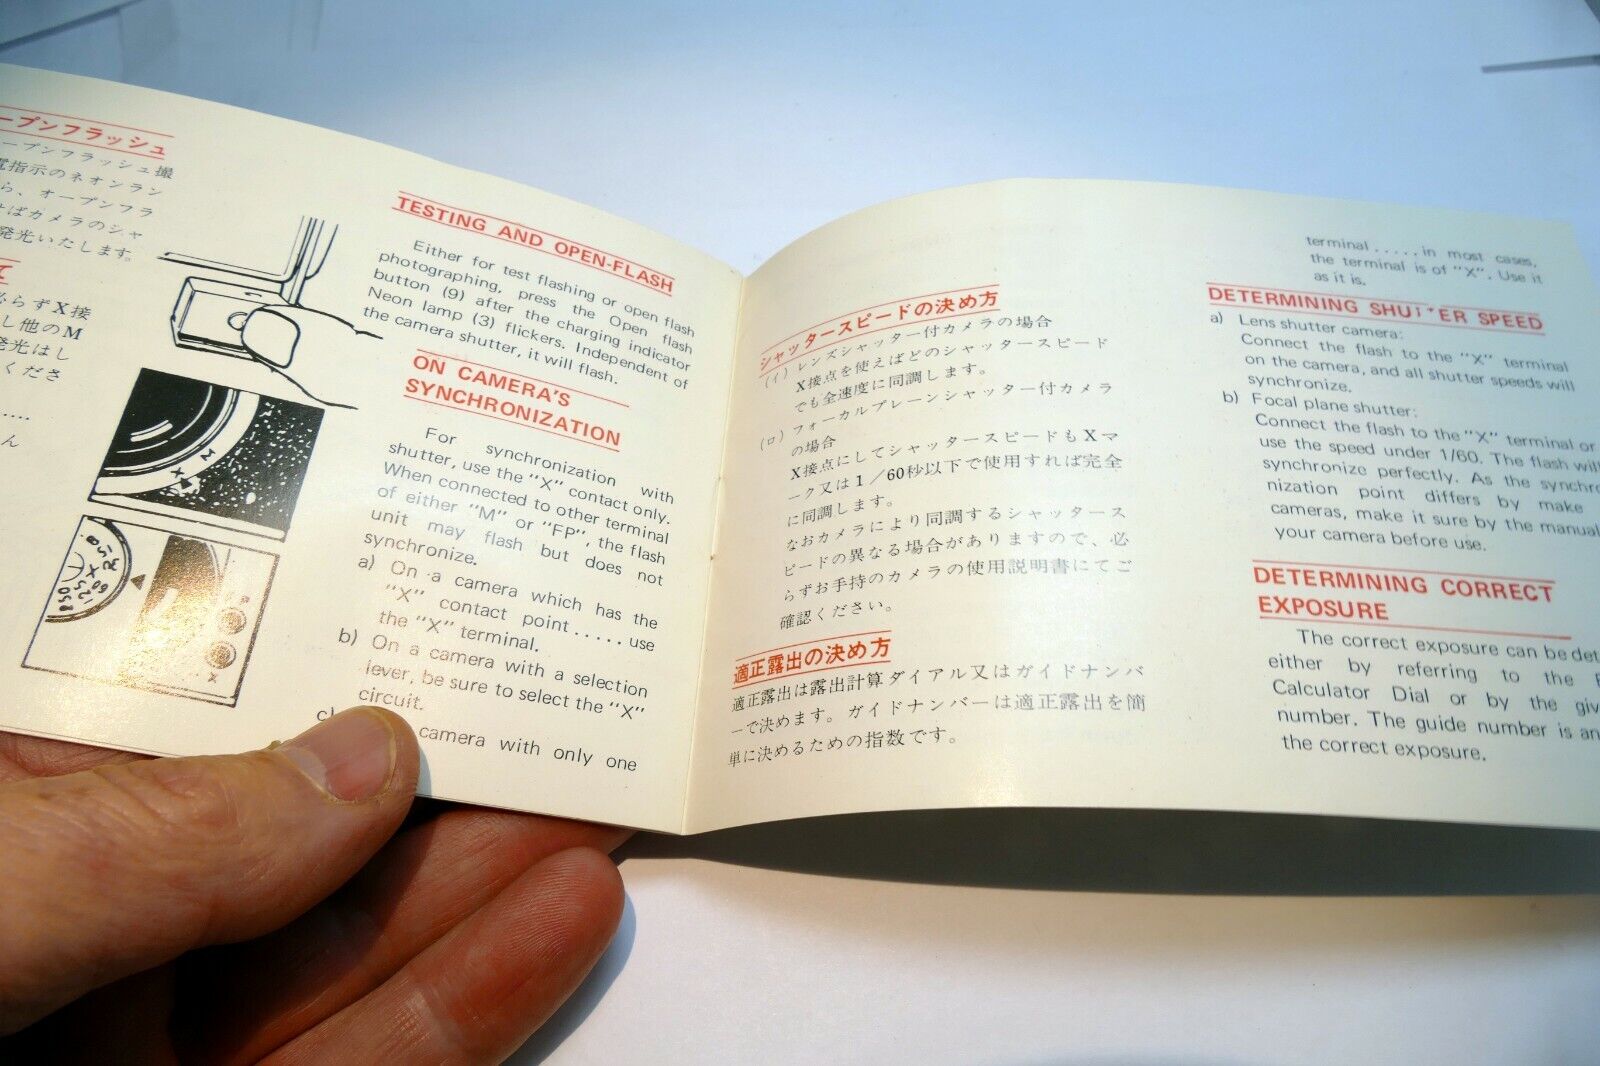 ープンフラッシュ
ープンフラッシュ撮
電指示のネオンラン
ら、オープンフラ
せばカメラのシャ
発光いたします。
て
必らずX接
し他のM
発光はし
くださ
.....
ん
X M
TESTING AND OPEN-FLASH
Either for test flashing or open flash
photographing, press the Open flash
button (9) after the charging indicator
Neon lamp (3) flickers. Independent of
the camera shutter, it will flash.
ON CAMERA'S
SYNCHRONIZATION
For synchronization with
shutter, use the "X" contact only.
When connected to other terminal
of either "M" or "FP", the flash
unit may flash but does not
synchronize.
a) On a camera which has the
"X" contact point.....use
the "X" terminal.
b) On a camera with a selection
lever, be sure to select the "X"
circuit.
c) camera with only one
シャッタースピードの決め方
(イ) レンズシャッター付カメラの場合
X接点を使えばどのシャッタースピード
でも全速度に同調します。
(ロ) フォーカルプレーンシャッター付カメラ
の場合
X接点にしてシャッタースピードもXマ
ーク又は1／60秒以下で使用すれば完全
に同調します。
なおカメラにより同調するシャッタース
ピードの異なる場合がありますので、必
らずお手持のカメラの使用説明書にてご
確認ください。
適正露出の決め方
適正露出は露出計算ダイアル又はガイドナンバ
ーで決めます。ガイドナンバーは適正露出を簡
単に決めるための指数です。
terminal.....in most cases,
the terminal is of "X". Use it
as it is.
DETERMINING SHUTTER SPEED
a) Lens shutter camera:
Connect the flash to the "X" terminal
on the camera, and all shutter speeds will
synchronize.
b) Focal plane shutter:
Connect the flash to the "X" terminal or
use the speed under 1/60. The flash will
synchronize perfectly. As the synchro
nization point differs by make
cameras, make it sure by the manual
your camera before use.
DETERMINING CORRECT
EXPOSURE
The correct exposure can be det
either by referring to the
Calculator Dial or by the giv
number. The guide number is an
the correct exposure.